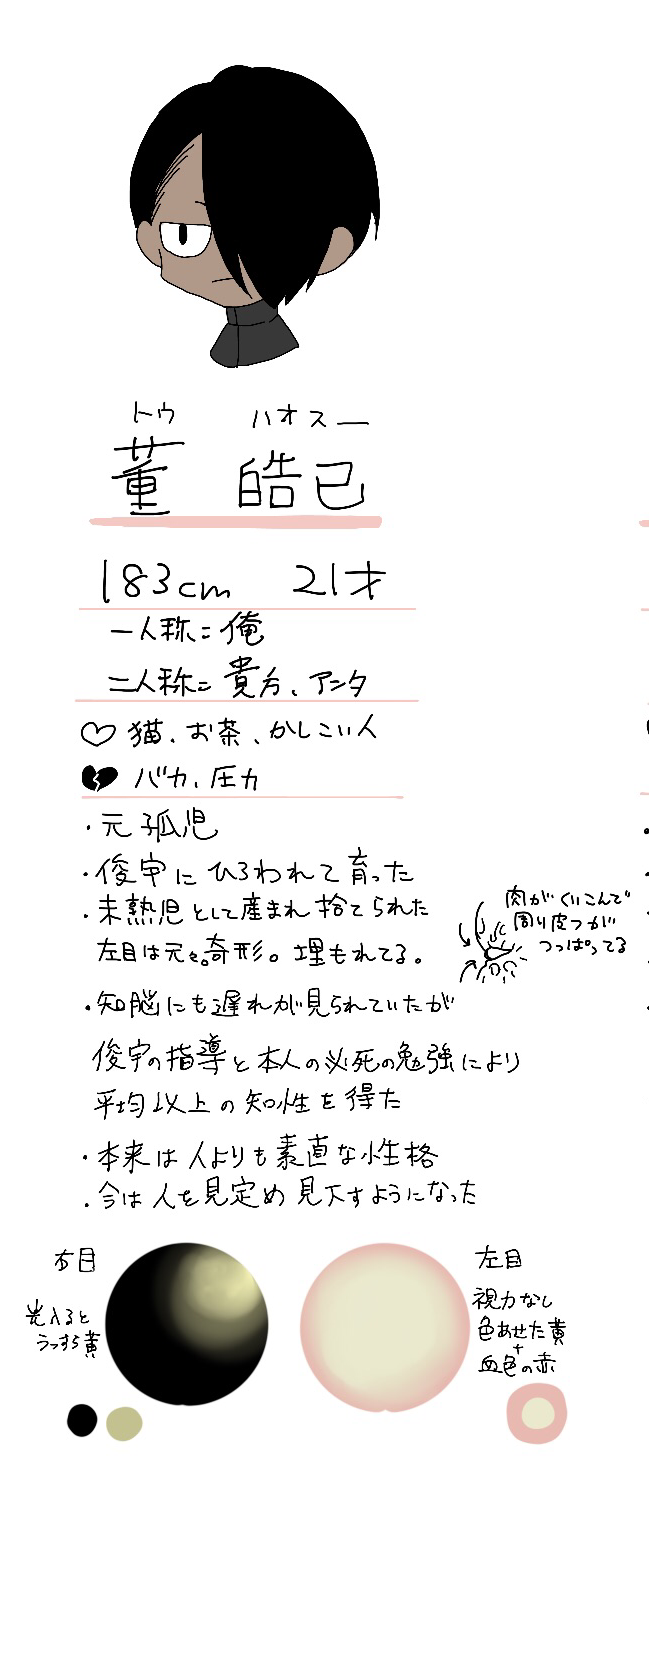 トウ ハオスー
董 皓已
183cm 21才
一人称=俺
二人称=貴方、アンタ
♡猫、お茶、かしこい人
💔バカ、圧力
・元孤児
・俊宇にひろわれて育った
・未熟児として産まれ捨てられた
左目は元々奇形。埋もれてる。
肉がくいこんで
周り皮フがつっぱってる
・知脳にも遅れが見られていたが
俊宇の指導と本人の必死の勉強により
平均以上の知性を得た
・本来は人よりも素直な性格
・今は人を見定め見下すようになった
右目
光入ると
うっすら黄
左目
視力なし
色あせた黄
+
血色の赤